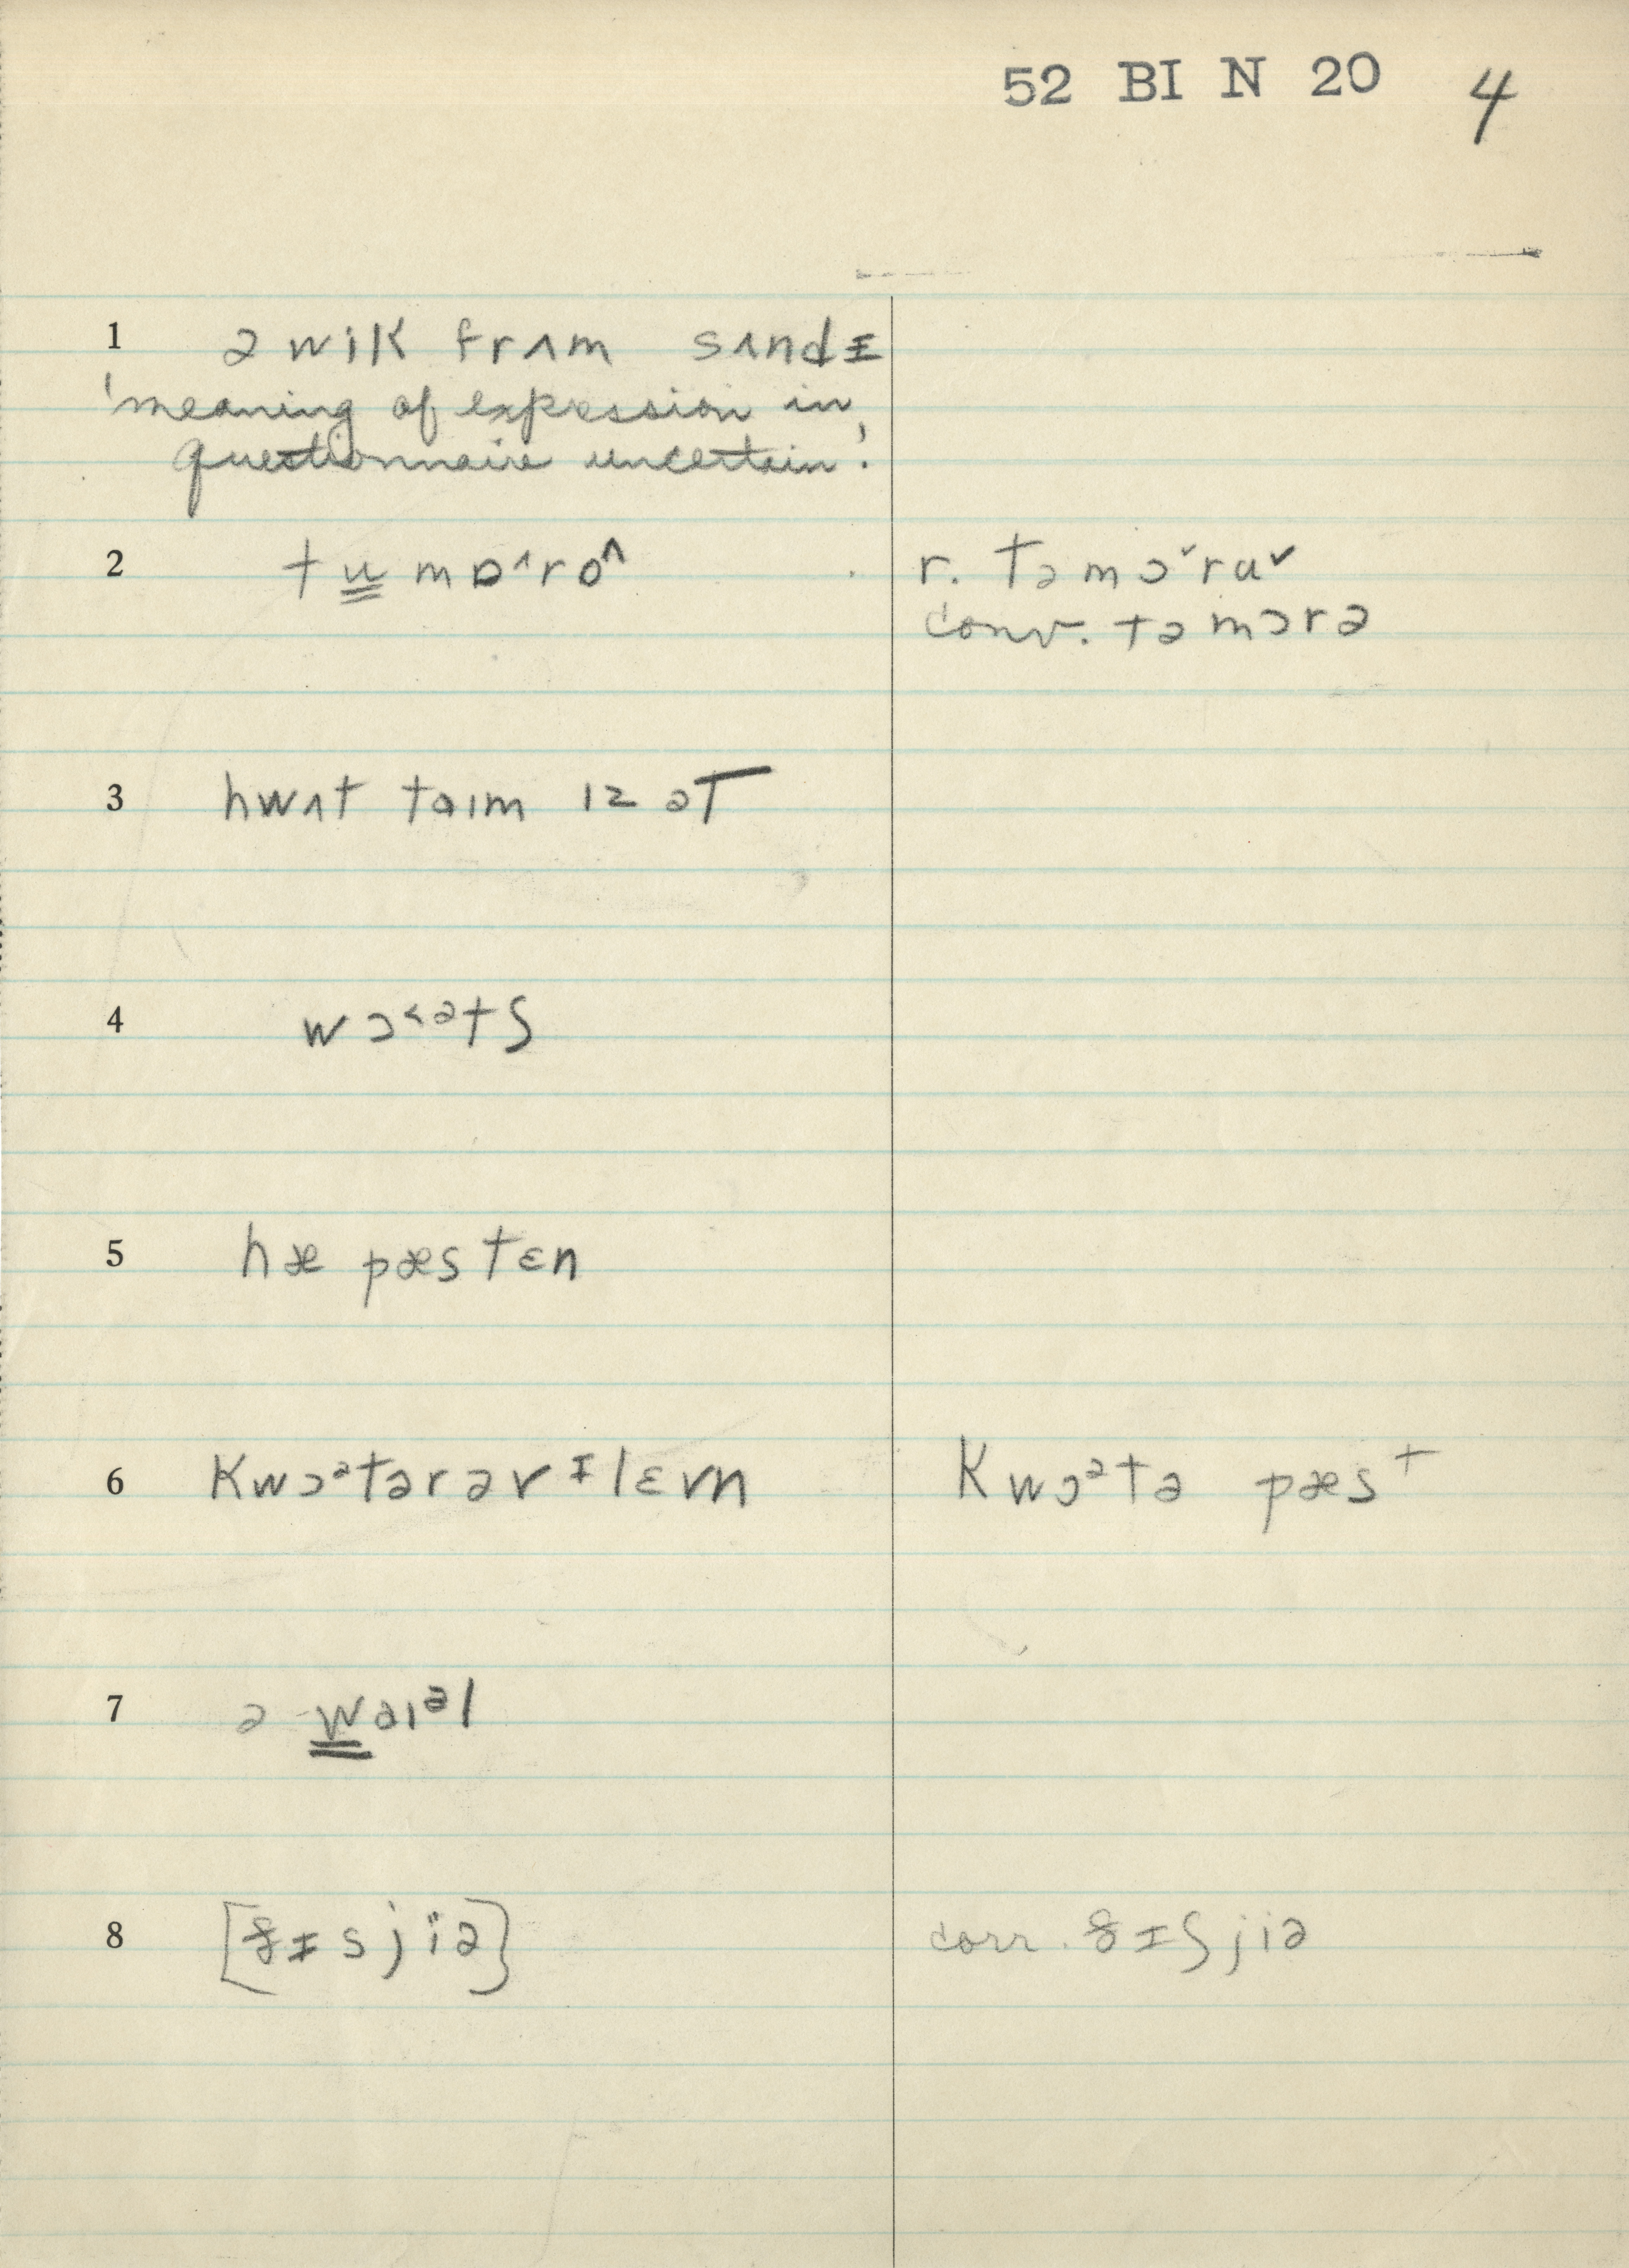 52 BI N 20 4
1 ə wik frʌm sʌndɪ
'meaning of expression in
questionnaire uncertain.'
2 tu̳mɒ^ro^ r. təmɔˇrɑˇ
conv. təmɔrə
3 hwʌt taɪm ɪz əT
4 wɔ˂ᵊtʃ
5 hæ pæs tɛn
6 kwɔᵊtərəvᵻlɛvn kwɔᵊtə pæst
7 ə w̳aɪᵊl
8 [ðᵻsjiə] corr. ðᵻʃjiə